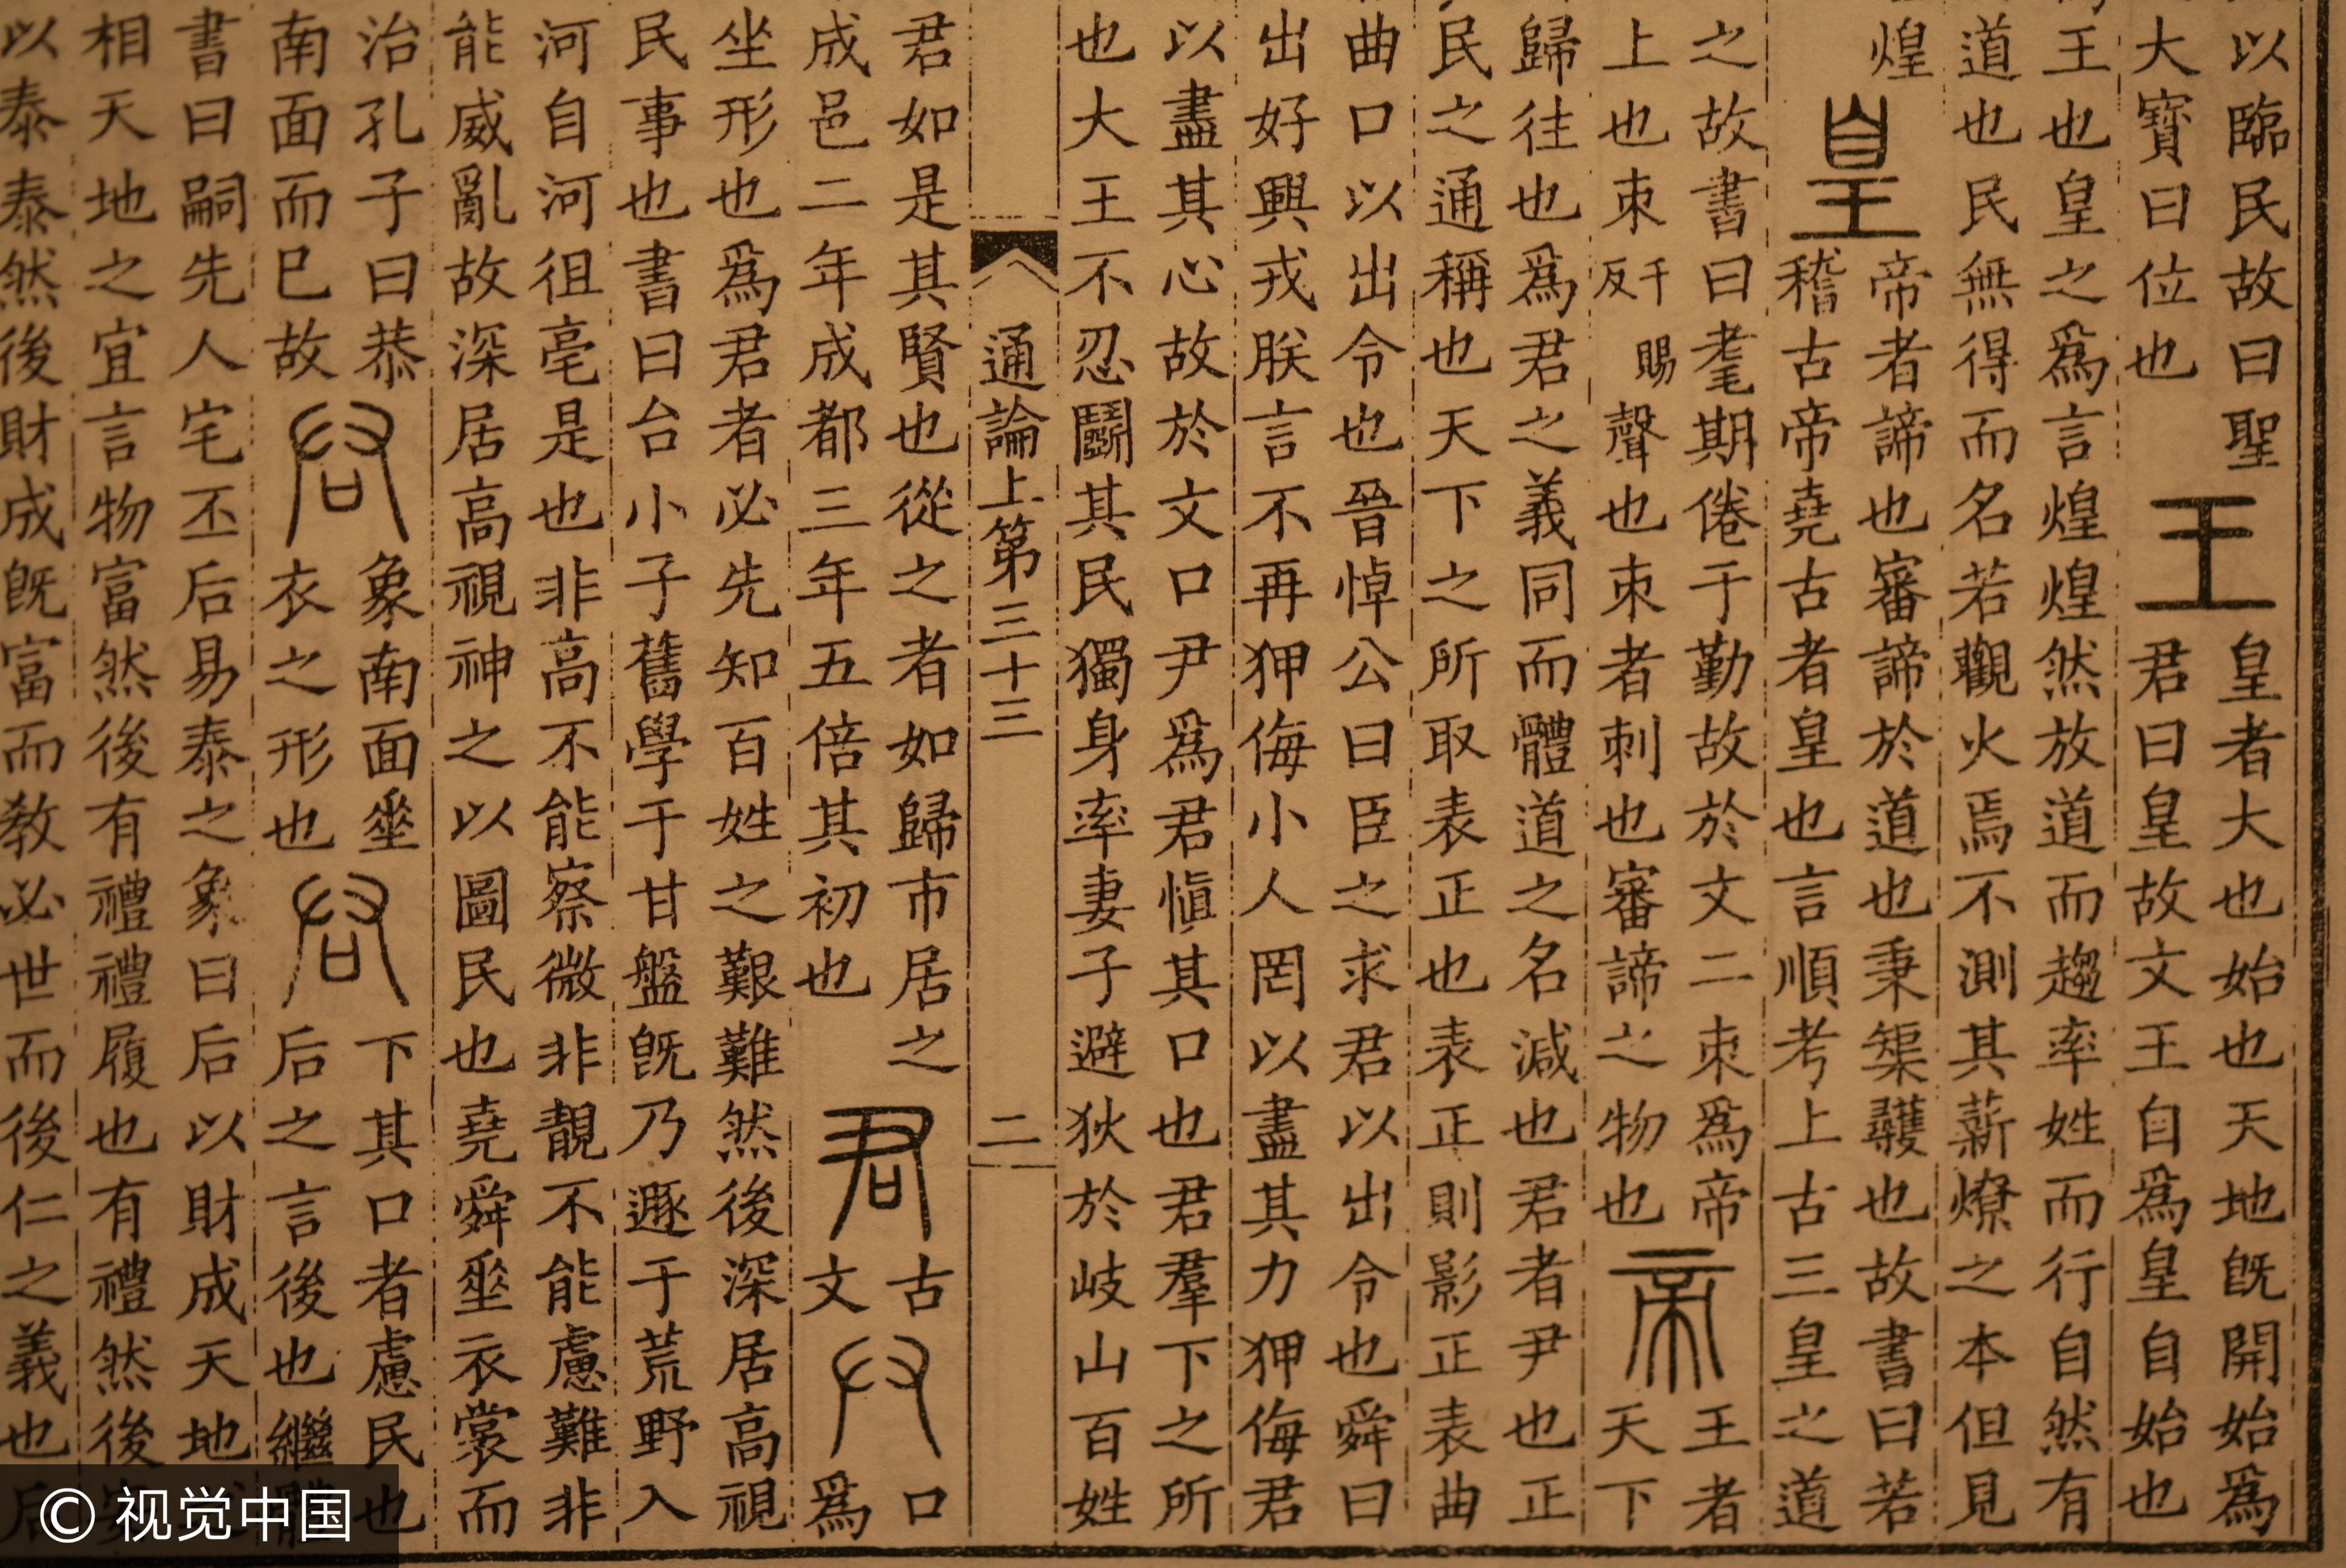 以臨民故曰聖
大寶曰位也
王
皇者大也始也天地旣開始爲
君曰皇故文王自爲皇自始也
王也皇之爲言煌煌然放道而趨率姓而行自然有
道也民無得而名若觀火焉不測其薪燎之本但見
煌
皇
帝者諦也審諦於道也秉榘彠也故書曰若
稽古帝堯古者皇也言順考上古三皇之道
之故書曰耄期倦于勤故於文二朿爲帝
上也朿千反賜聲也朿者刺也審諦之物也
帝
王者
天下
歸往也爲君之義同而體道之名減也君者尹也正
民之通稱也天下之所取表正也表正則影正表曲
曲口以出令也晉悼公曰臣之求君以出令也舜曰
出好興戎朕言不再狎侮小人罔以盡其力狎侮君
以盡其心故於文口尹爲君愼其口也君羣下之所
也大王不忍鬭其民獨身率妻子避狄於岐山百姓
通論上第三十三 二
君如是其賢也從之者如歸市居之
成邑二年成都三年五倍其初也
君
古
文
口
爲
坐形也爲君者必先知百姓之艱難然後深居高視
民事也書曰台小子舊學于甘盤旣乃遯于荒野入
河自河徂亳是也非高不能察微非靚不能慮難非
能威亂故深居高視神之以圖民也堯舜坐衣裳而
治孔子曰恭
南面而已故
象南面坐
衣之形也
下其口者慮民也
后之言後也繼體
書曰嗣先人宅丕后易泰之象曰后以財成天地
相天地之宜言物富然後有禮禮履也有禮然後
以泰泰然後財成旣富而敎必世而後仁之義也后
© 视觉中国